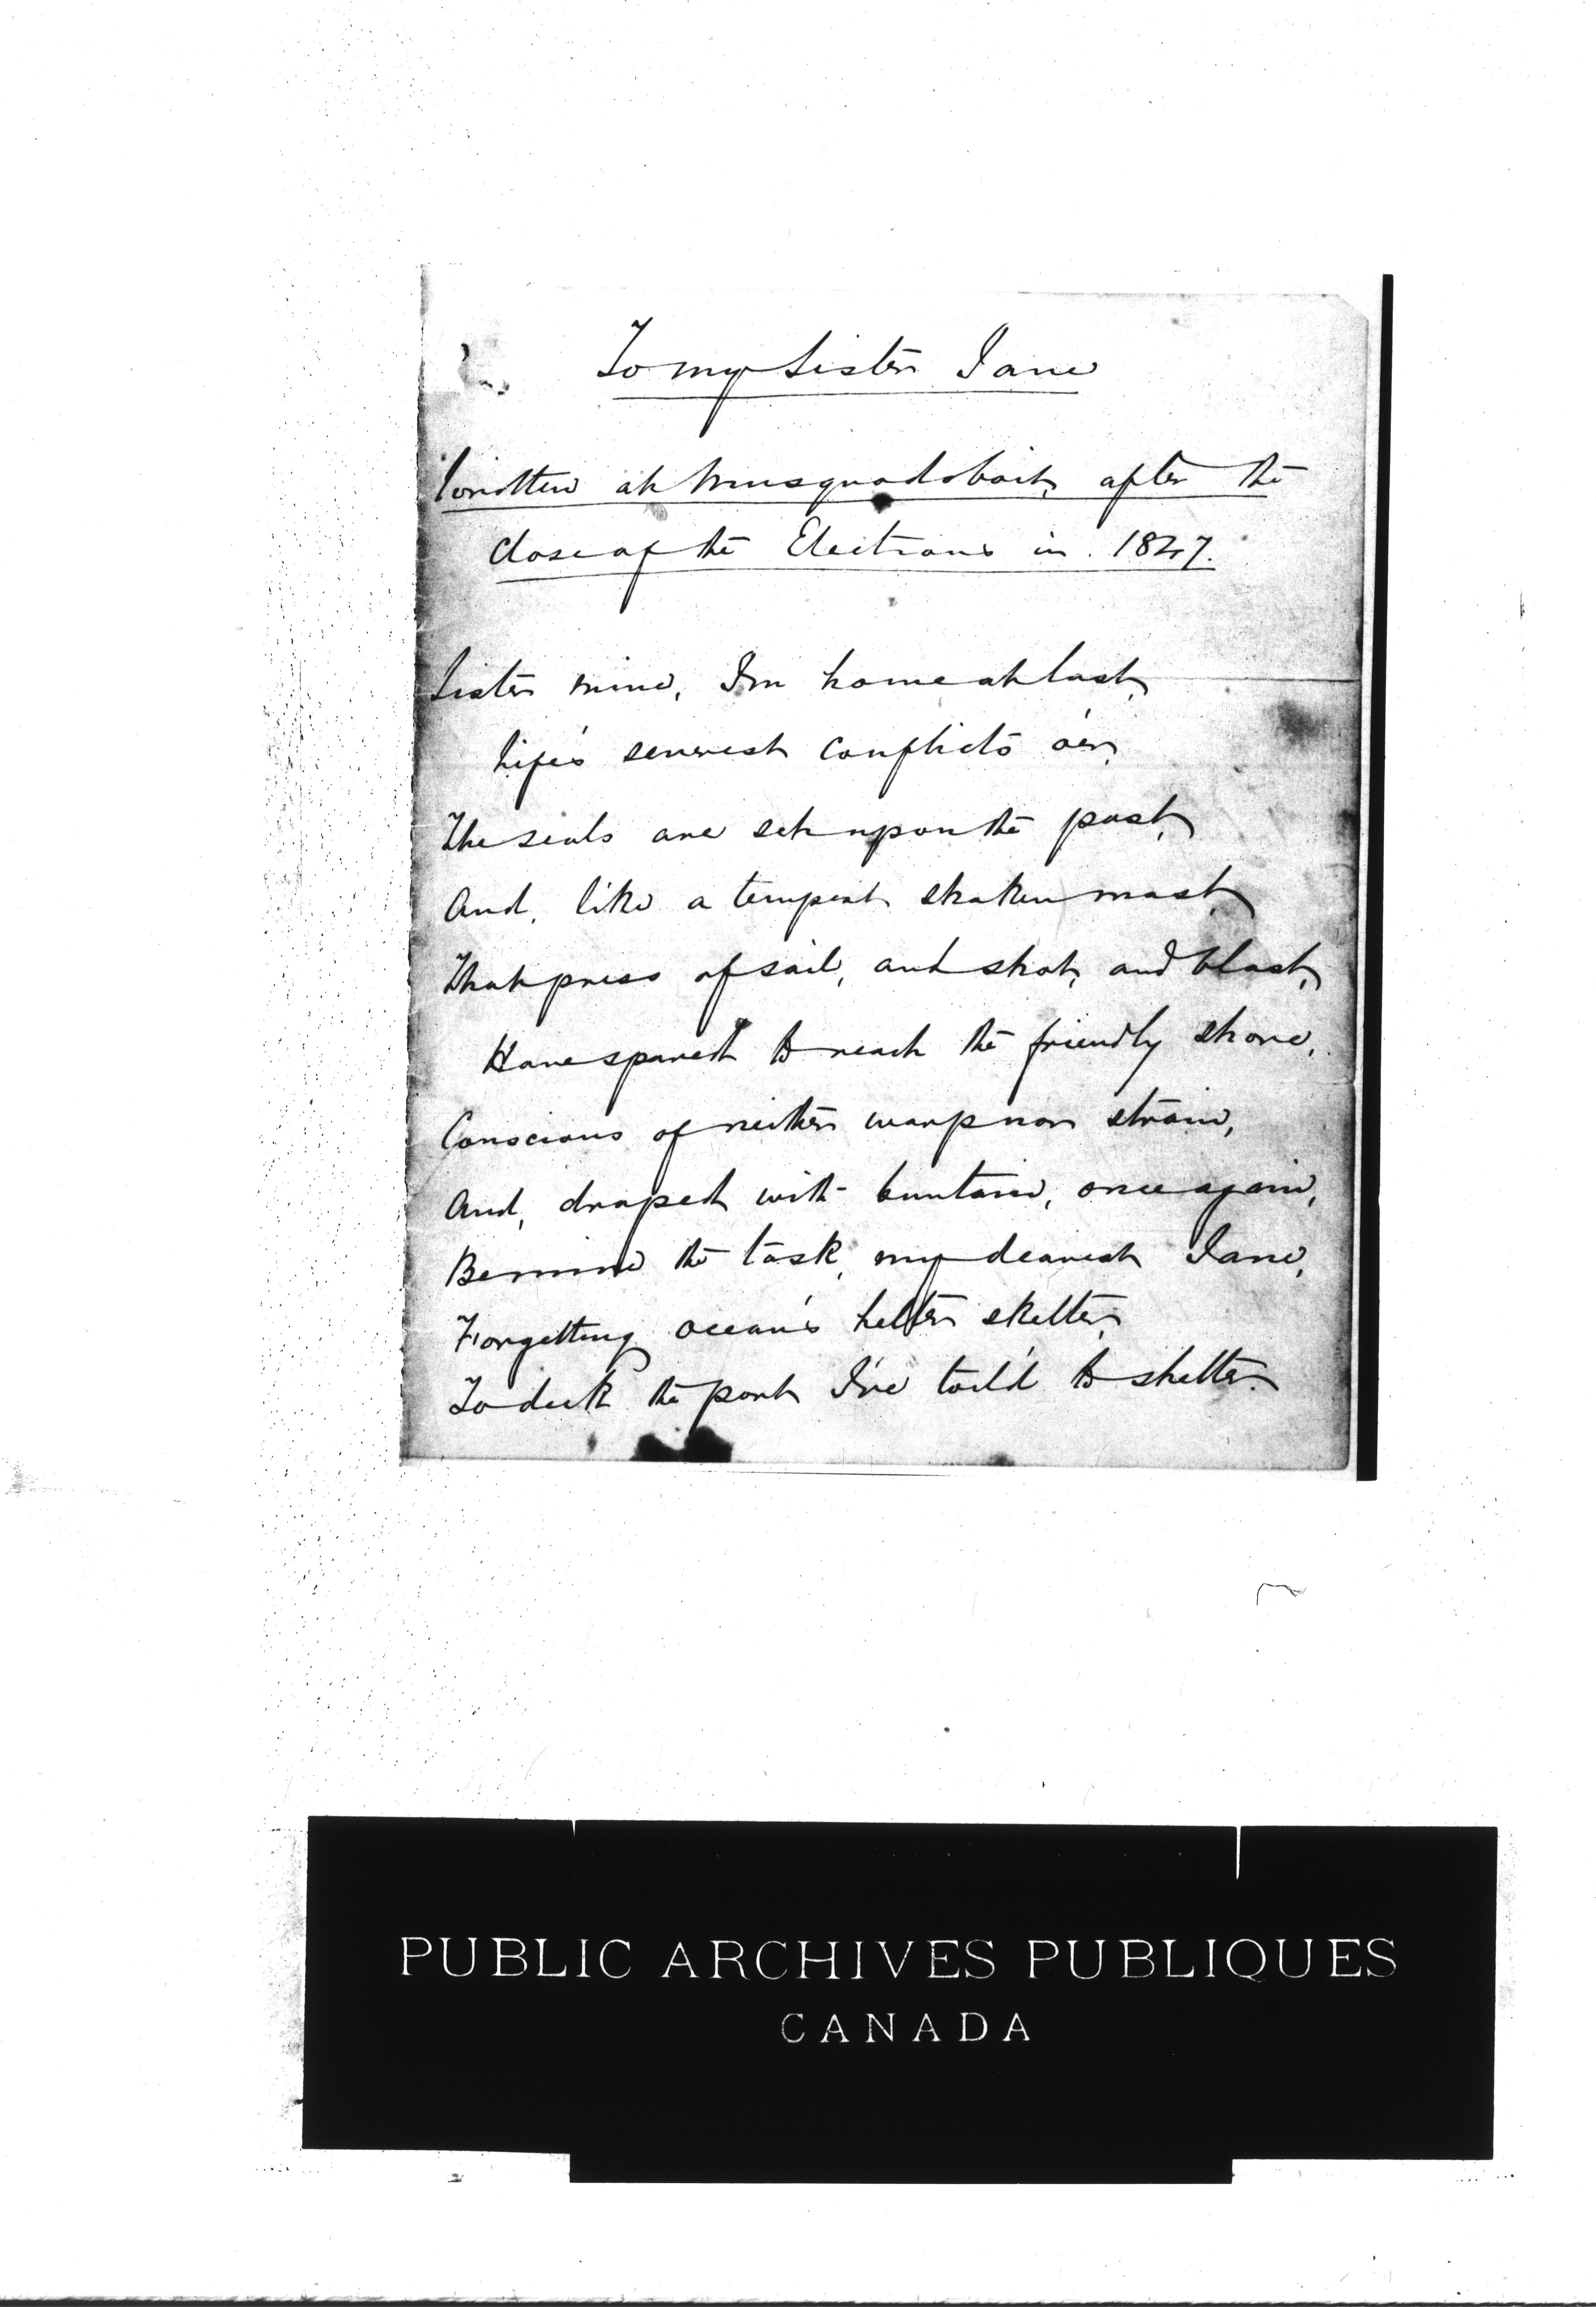 To my Sister Jane
Written at Musquodoboit, after the
close of the Elections in 1847.
Sister mine, I'm home at last,
Life's severest conflicts o'er,
The seals are set upon the past,
And, like a tempest shaken mast,
That press of sail, and shot, and blast,
Have spared to reach the friendly shore,
Conscious of neither warp nor strain,
And, draped with buntain, once again,
Be mine the task, my dearest Jane,
Forgetting ocean's helter skelter,
To deck the port I've toil'd to shelter.
PUBLIC ARCHIVES PUBLIQUES
CANADA